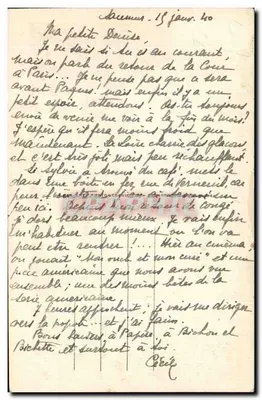 Saumur 15 janv. 40
Ma petite Denise,
Je ne sais si tu es au courant,
mais on parle du retour de la Cour
à Paris... Je ne pense pas que ce sera
avant Pâques mais enfin il y a un
petit espoir, attendons! As-tu toujours
envie de venir me voir à la fin du mois?
J'espère qu'il fera moins froid que
maintenant. La Loire charrie des glaçons
et c'est très joli mais peu réchauffant.
Le Sylvia a du café, mets le
dans une boîte en fer car
je dors beaucoup mieux. Je vais enfin
m'habituer au moment où l'on va
peut être rentrer!... Hier au cinéma
on jouait "Mon oncle et mon curé" et une
pièce américaine que nous avons vue
ensemble; une des moins bêtes de la
série américaine.
7 heures approchent; je vais me diriger
vers la popote et j'ai faim.
Bons baisers à Papa, à Bichon et
Bichette et surtout à toi.
Cécile